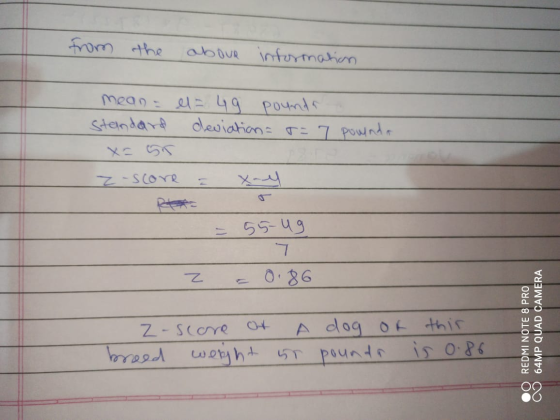 from the above information
mean = μ = 49 pounds
standard deviation = σ = 7 pounds
x = 55
Z-score = x-μ
σ
= 55-49
7
Z = 0.86
Z-score of A dog of this
breed weight 55 pounds is 0.86
REDMI NOTE 8 PRO
64MP QUAD CAMERA